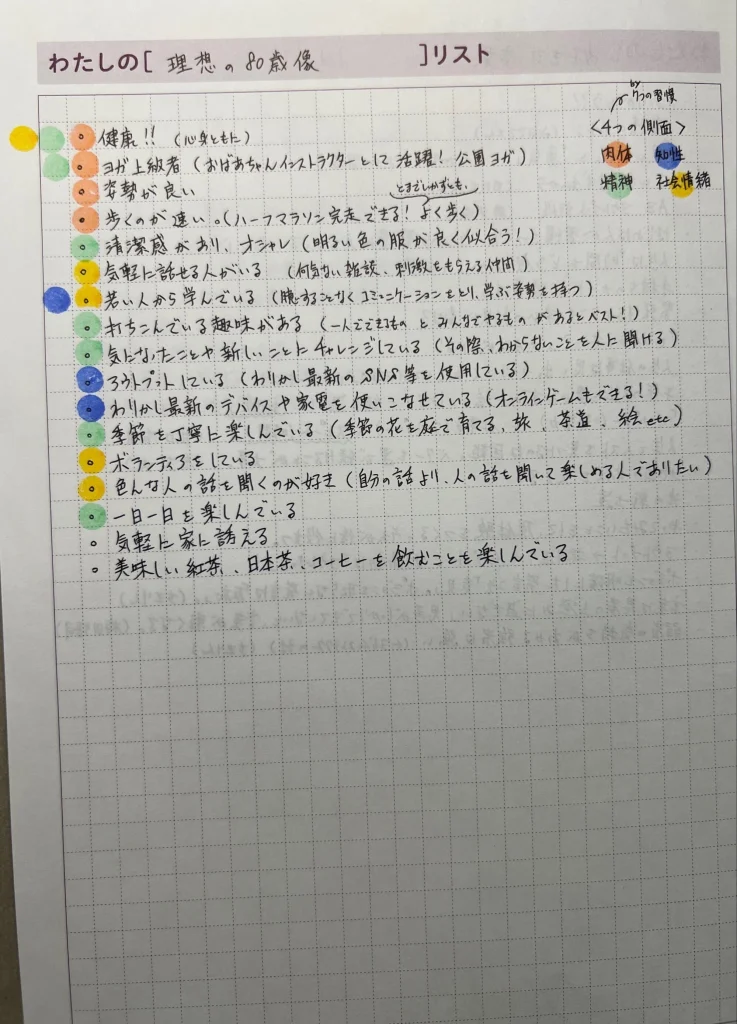 わたしの[ 理想の80歳像 ]リスト
by 7つの習慣
<4つの側面>
肉体 知性
精神 社会情緒
健康!! (心身ともに)
ヨガ上級者 (おばあちゃんインストラクターとして 活躍! 公園ヨガ)
姿勢が良い
とまでいかずとも、
歩くのが速い。(ハーフマラソン完走できる! よく歩く)
清潔感があり、オシャレ (明るい色の服が良く似合う!)
気軽に話せる人がいる (何気ない雑談、刺激をもらえる仲間)
若い人から学んでいる (臆することなくコミュニケーションをとり、学ぶ姿勢を持つ)
打ちこんでいる趣味がある (一人でできるもの と みんなでやるもの があるとベスト!)
気になったことや新しいことにチャレンジしている (その際、わからないことを人に聞ける)
アウトプットしている (わりかし最新のSNS等を使用している)
わりかし最新のデバイスや家電を使いこなせている (オンラインゲームもできる!)
季節を丁寧に楽しんでいる (季節の花を庭で育てる、旅、茶道、絵etc)
ボランティアをしている
色んな人の話を聞くのが好き (自分の話より、人の話を聞いて楽しめる人でありたい)
一日一日を楽しんでいる
気軽に家に誘える
美味しい紅茶、日本茶、コーヒーを飲むことを楽しんでいる